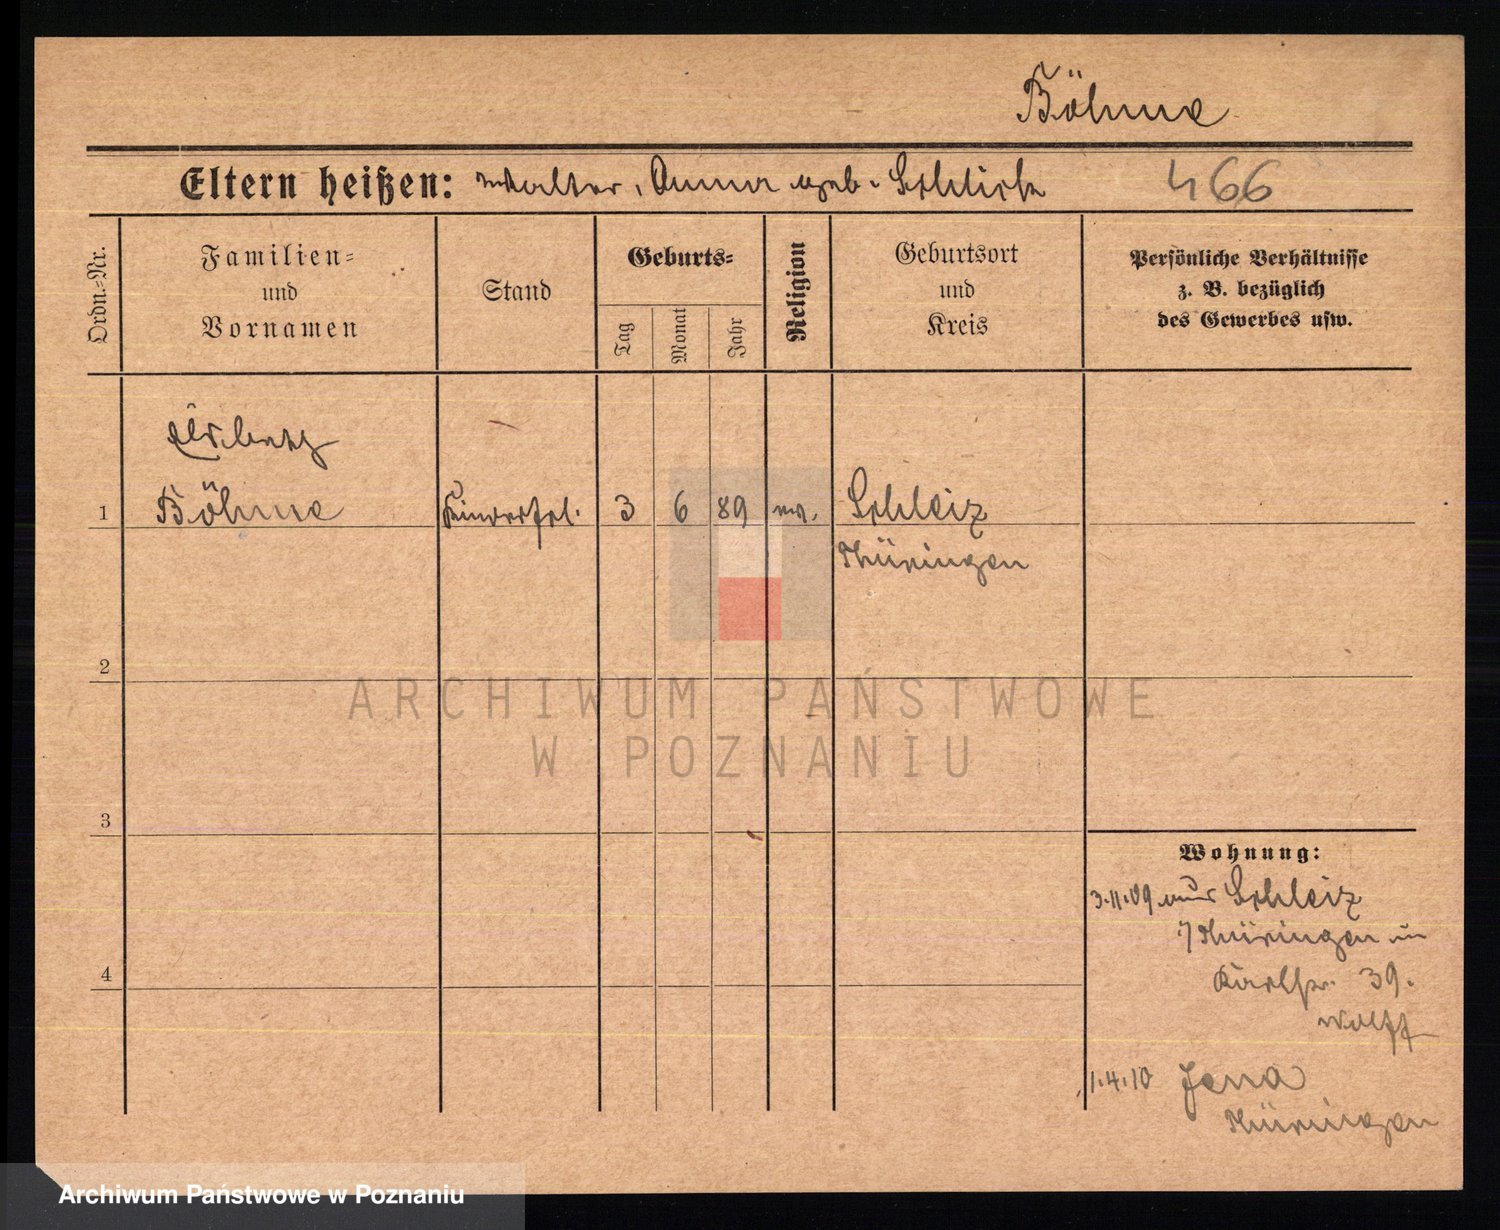 Böhme
Eltern heißen: Walter, Anna geb. Schlick 466
Ordn.=Nr.
Familien=
und
Vornamen
Stand
Geburts=
Tag
Monat
Jahr
Religion
Geburtsort
und
Kreis
Persönliche Verhältnisse
z. B. bezüglich
des Gewerbes usw.
1 Böhme Kinderfrl. 3 6 89 Schleiz
Thüringen
2
ARCHIWUM PAŃSTWOWE
W POZNANIU
3
Wohnung:
3.11.09 aus Schleiz
i/Thüringen
4
Karlstr. 39.
Wolff
1.4.10 Jena
Thüringen
Archiwum Państwowe w Poznaniu